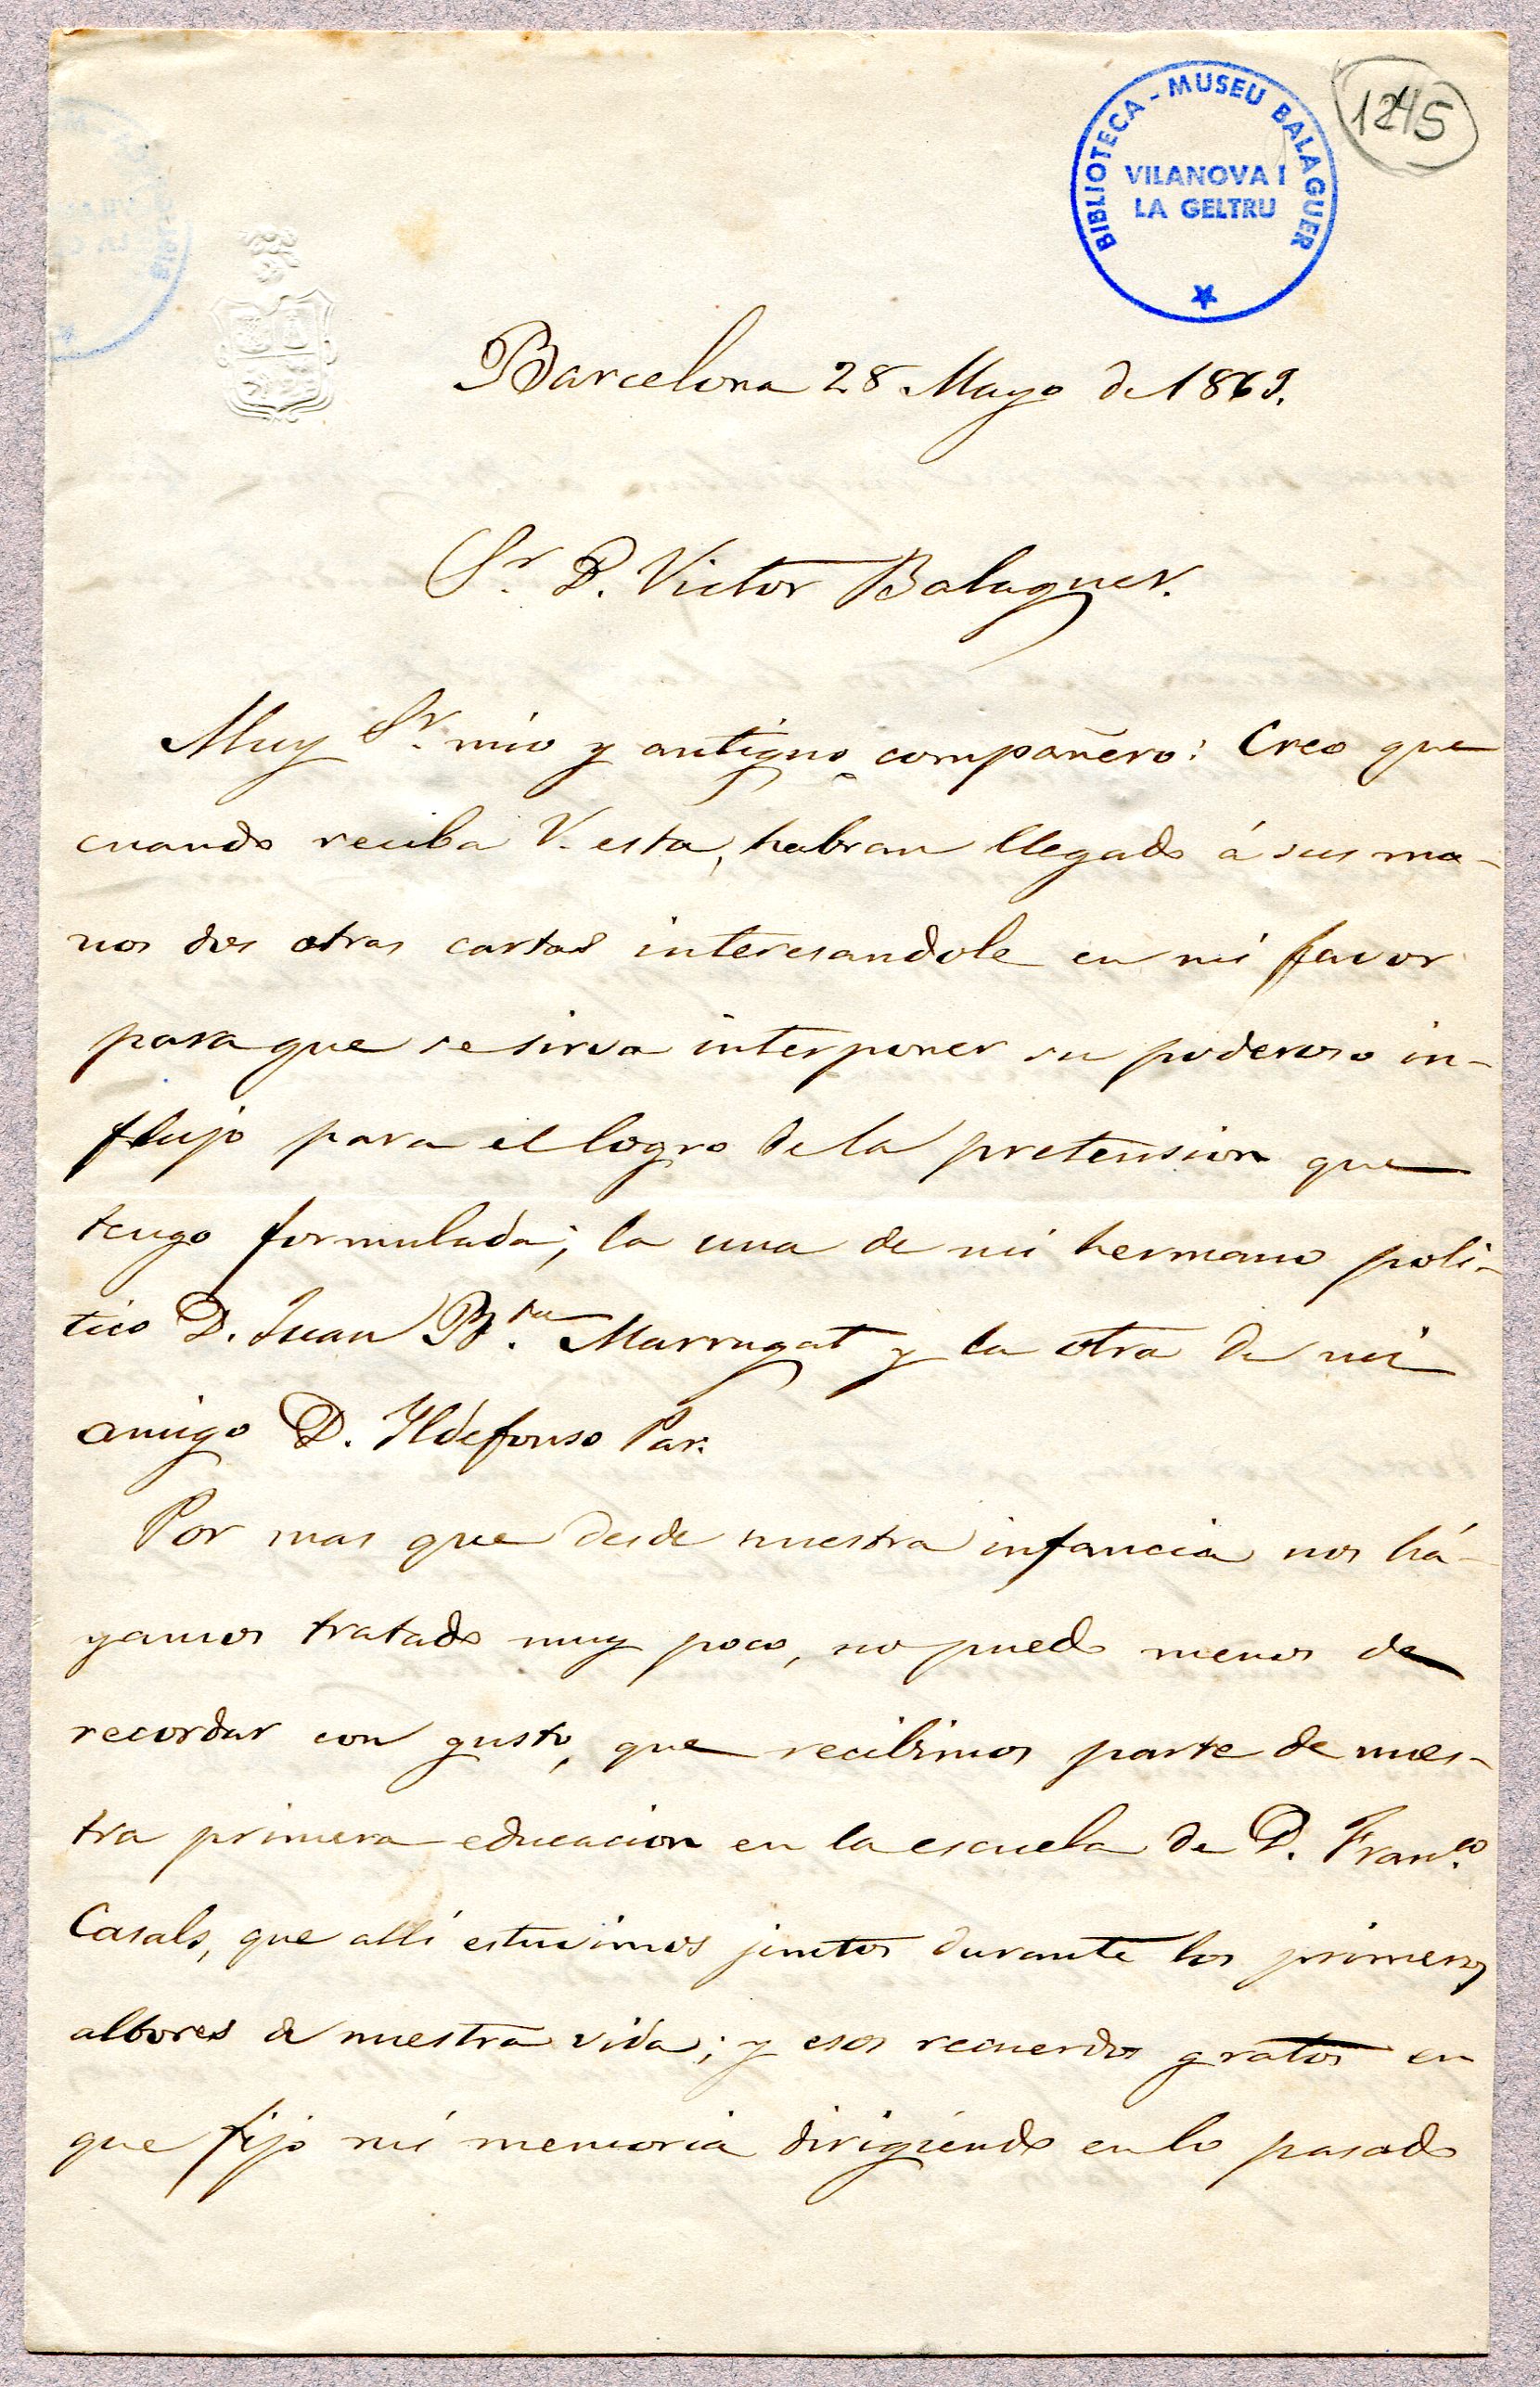 1245
BIBLIOTECA - MUSEU BALAGUER
VILANOVA I
LA GELTRU
Barcelona 28 Mayo de 1869.
Sr. D. Victor Balaguer.
Muy Sr. mio y antiguo compañero: Creo que
cuando reciba V. esta, habran llegado á sus ma-
nos dos otras cartas interesandole en mi favor
para que se sirva interponer su poderoso in-
flujo para el logro de la pretension que
tengo formulada; la una de mi hermano poli-
tico D. Juan Bta. Marrugat y la otra de mi
amigo D. Ildefonso Par.
Por mas que desde nuestra infancia nos há-
yamos tratado muy poco, no puedo menos de
recordar con gusto, que recibimos parte de nues-
tra primera educacion en la escuela de D. Franco.
Casals, que allí estuvimos juntos durante los primeros
albores de nuestra vida; y esos recuerdos gratos en
que fijo mi memoria dirigiendo en lo pasado